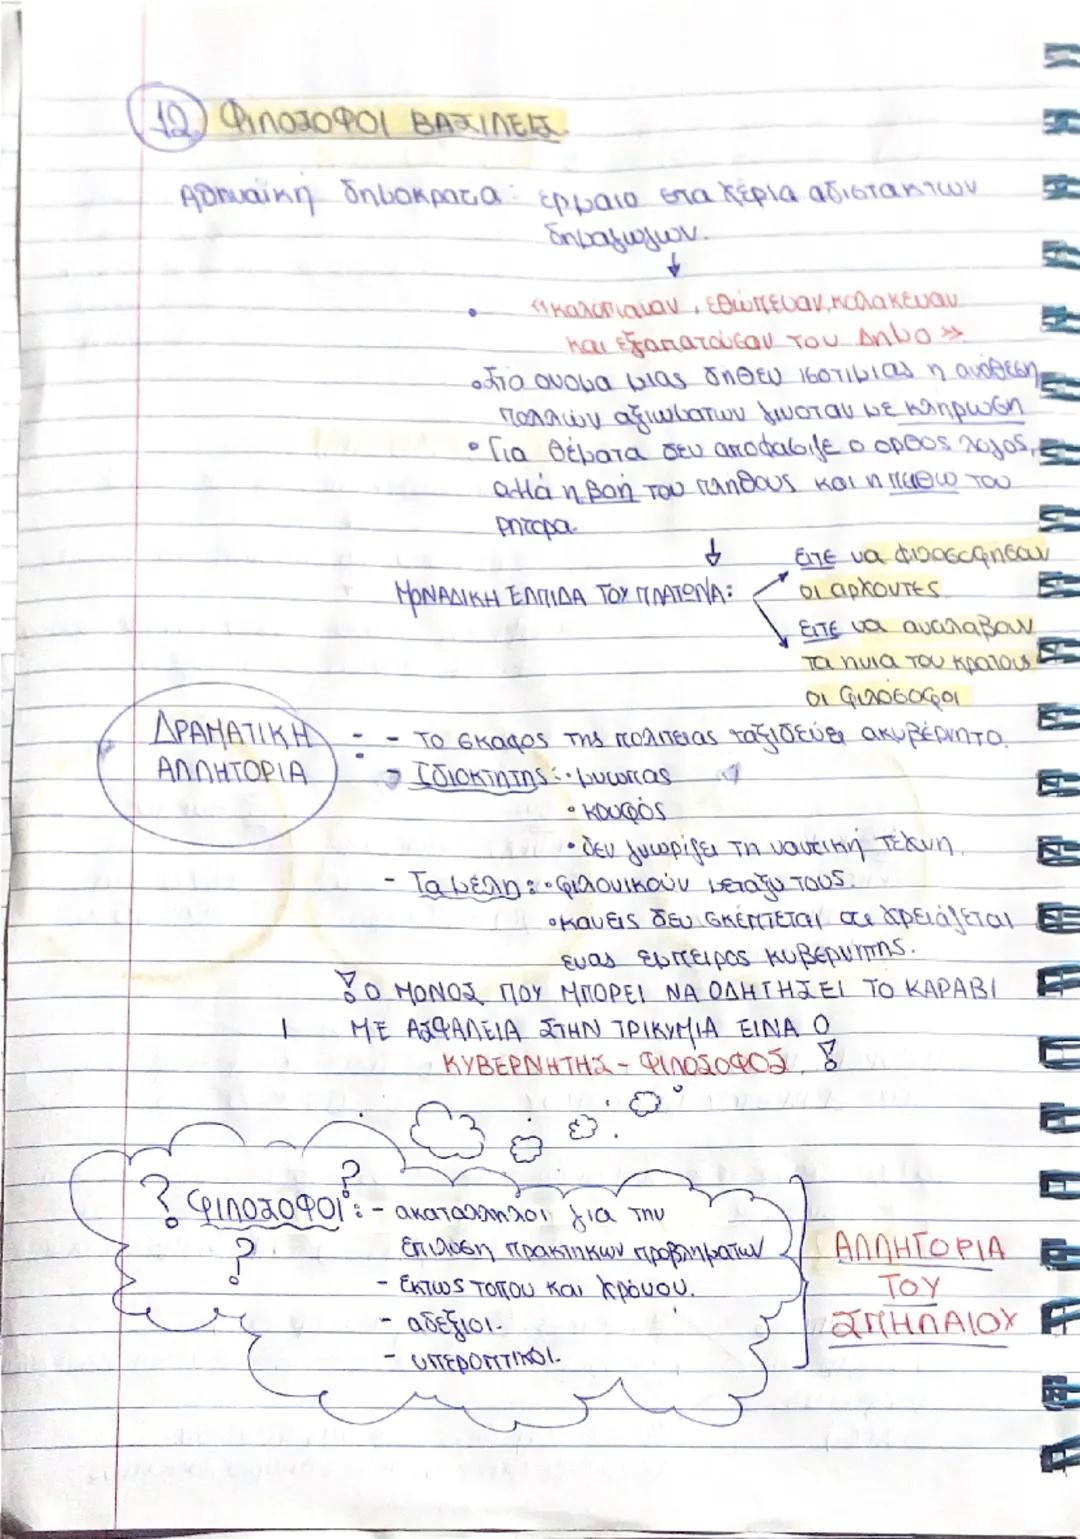 12 ΦΙΛΟΣΟΦΟΙ ΒΑΣΙΛΕΙΣ.
Αθηναϊκή δημοκρατα: ερμαιο στα χέρια αδίστακτων
δημαγωγών.
↓
• «καλόπιαναν, εθώπευαν, κολάκευαν
και εξαπατούσαν τον Δήμο».
• Στο ονομα μιας δηθεν ισοτιμιας η αναθεση
πολλών αξιωματων γινοταν με κληρωση
• Για θέματα δεν αποφασιζε ο ορθος λογος,
αλλά η βοή του πληθους και η πειθω του
ρητορα.
↓
ΜΟΝΑΔΙΚΗ ΕΛΠΙΔΑ ΤΟΥ ΠΛΑΤΩΝΑ:
είτε να φιλοσοφησουν
οι αρχοντες
είτε να αναλαβουν
τα ηνια του κρατους
οι φιλόσοφοι
ΔΡΑΜΑΤΙΚΗ
ΑΛΛΗΓΟΡΙΑ
: - το σκαφος της πολιτειας ταξιδεύει ακυβέρνητο.
→ Ιδιοκτητης: • μυωπας
• κουφός
• δεν γνωρίζει τη ναυτική τέχνη.
- Τα μέλη: • φιλονικούν μεταξυ τους.
• κανεις δεν σκέπτεται οτι χρειάζεται
ενας εμπειρος κυβερνητης.
! Ο ΜΟΝΟΣ ΠΟΥ ΜΠΟΡΕΙ ΝΑ ΟΔΗΓΗΣΕΙ ΤΟ ΚΑΡΑΒΙ
ΜΕ ΑΣΦΑΛΕΙΑ ΣΤΗΝ ΤΡΙΚΥΜΙΑ ΕΙΝΑ Ο
ΚΥΒΕΡΝΗΤΗΣ - ΦΙΛΟΣΟΦΟΣ. !
? ? ?
ΦΙΛΟΣΟΦΟΙ: - ακαταλληλοι για την
επιλυση πρακτηκων προβληματων
- Εκτως τοπου και χρόνου.
- αδέξιοι.
- υπεροπτικοι.
ΑΛΛΗΓΟΡΙΑ
ΤΟΥ
ΣΠΗΛΑΙΟΥ